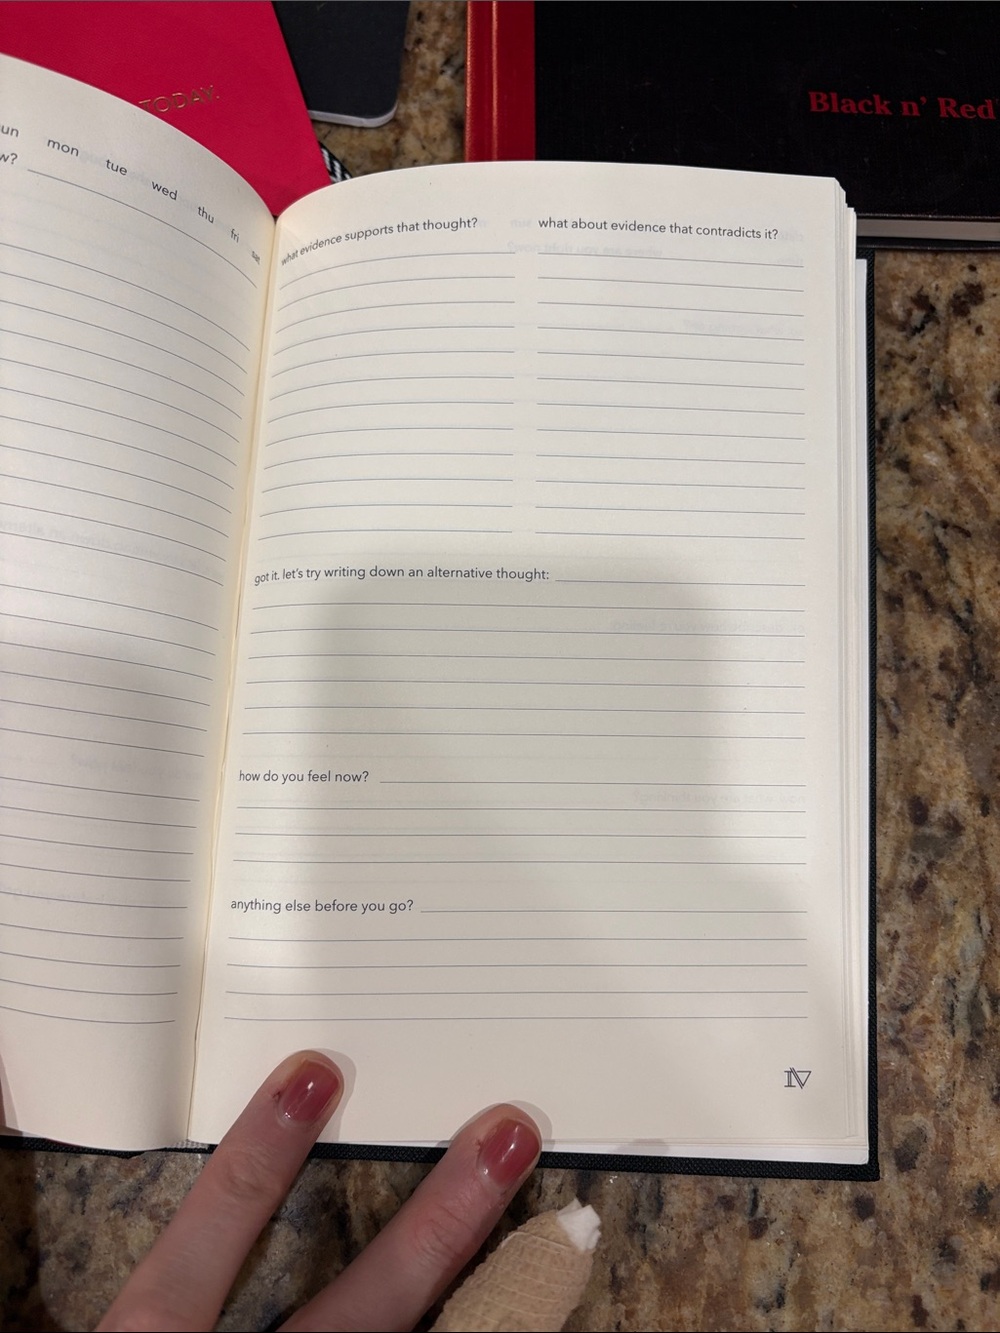 TODAY.
Black n' Red
un mon tue wed thu fri sat
w?
what evidence supports that thought?
what about evidence that contradicts it?
got it. let's try writing down an alternative thought:
how do you feel now?
anything else before you go?
IV